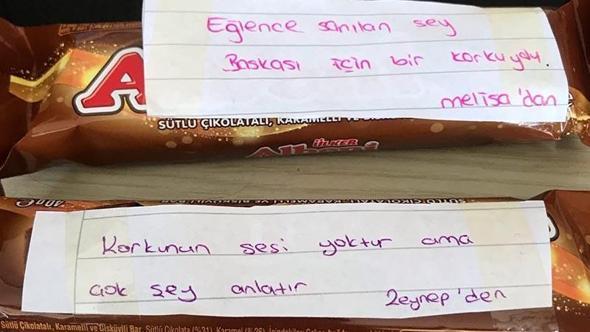 Eğlence sanılan şey
Başkası için bir korkuydu.
melisa'dan
SÜTLÜ ÇİKOLATALI, KARAMELLİ VE
ÜLKER
Albeni
Korkunun sesi yoktur ama
çok şey anlatır Zeynep'den
Sütlü Çikolatalı, Karamelli ve Bisküvili Bar. Sütlü Çikolata